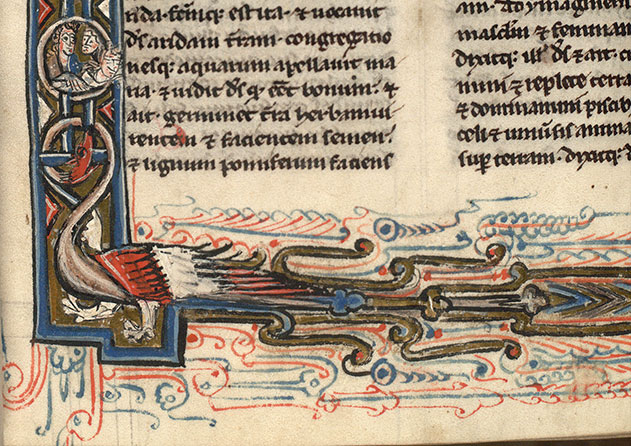 rida. factumq; est ita. & uocauit
ds aridam terram. congregatio
nesq; aquarum apellauit ma
ria. & uidit ds q. eet bonum. &
ait. germinet tra herbam ui
rentem & facientem semen.
& lignum pomiferum faciens
am. ad ymaginem
masclm & feminam
dixitq; ds & ait. c
mini & replete terra
& dominamini piscib
celi & uniusis anima
sup terram. dixitq;